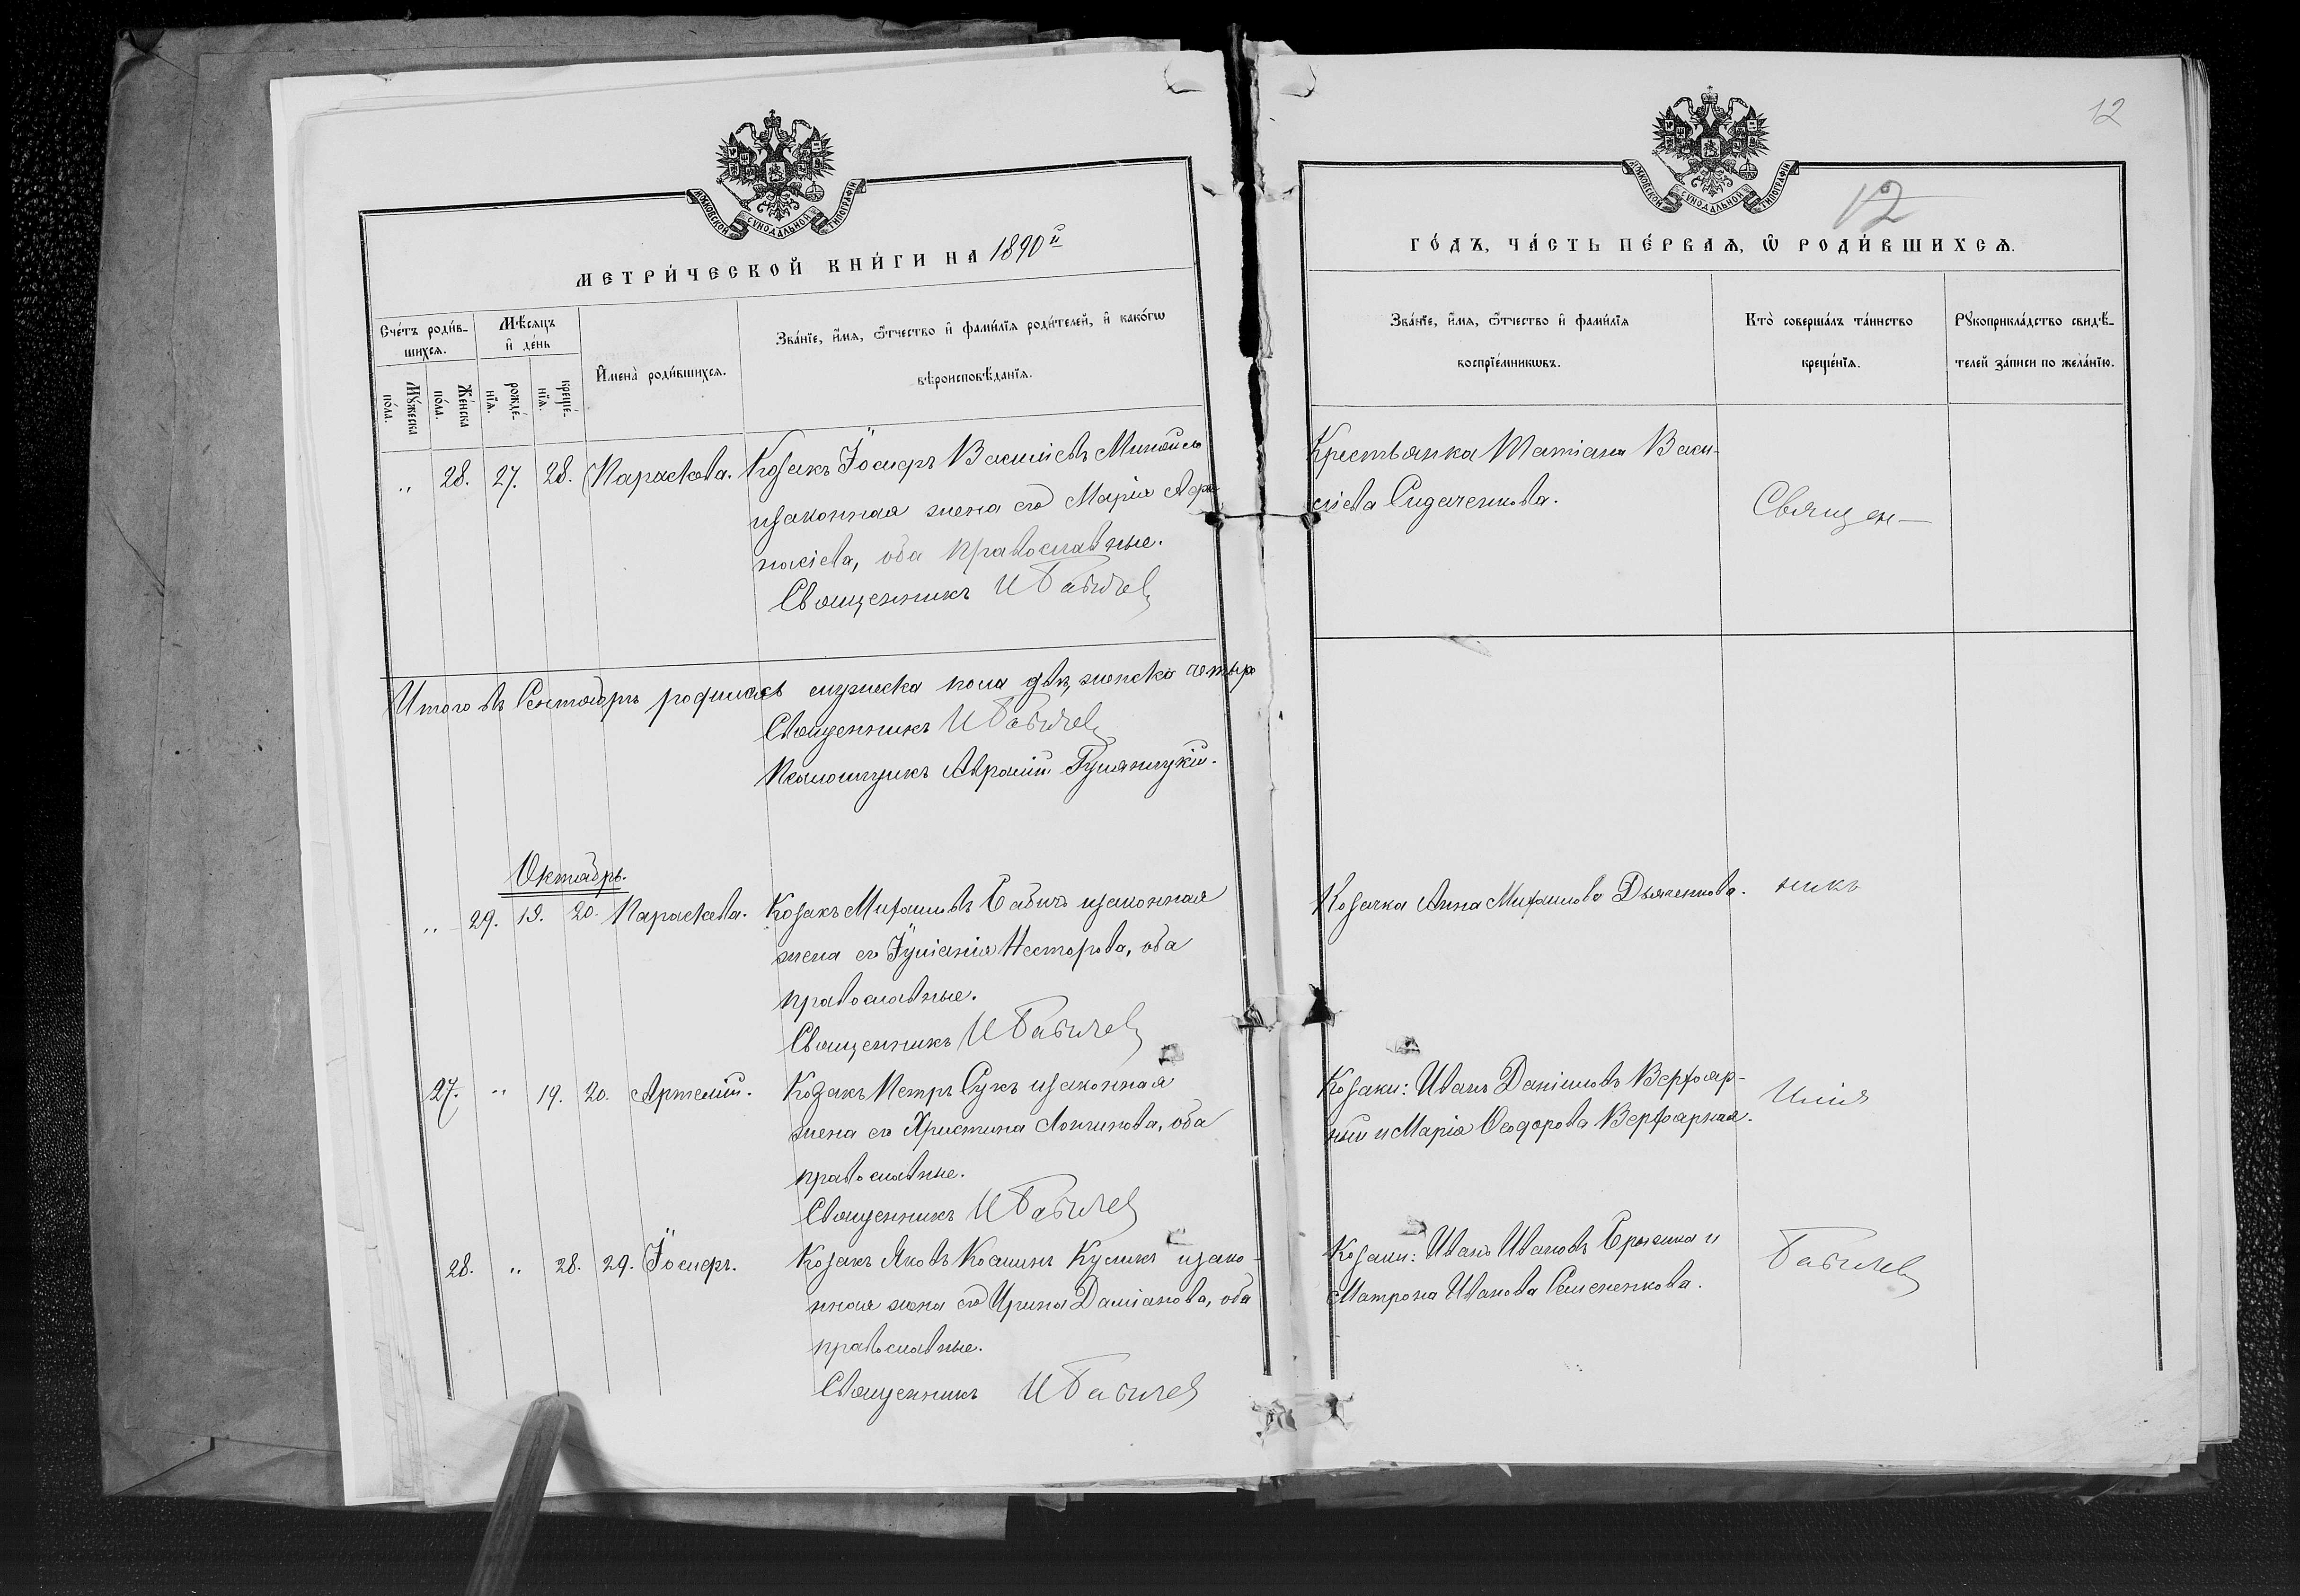 12
МОСКОВСКОЙ СУНОДАЛЬНОЙ ТИПОГРАФІИ
МОСКОВСКОЙ СУНОДАЛЬНОЙ ТИПОГРАФІИ
12
МЕТРИ́ЧЕСКОЙ КНИ́ГИ НА 1890й
ГО́ДЪ, ЧА́СТЬ ПЕ́РВАѦ, Ѿ РОДИ́ВШИХСѦ.
Счéтъ роди́в-
шихсѧ.
Мꙋ́жеска по́ла.
Же́нска по́ла.
Мѣ́сѧцъ
и҆ де́нь
рожде́-
нїѧ.
креще́-
нїѧ.
И҆мена̀ роди́вшихсѧ.
Зва́нїе, и҆́мѧ, ѻ҆́тчество и҆ фами́лїѧ роди́телей, и҆ како́гѡ
вѣроисповѣ́данїѧ.
Зва́нїе, и҆́мѧ, ѻ҆́тчество и҆ фами́лїѧ
воспрїе́мникѡвъ.
Кто̀ соверша́лъ та́инство
креще́нїѧ.
Рꙋкоприкла́дство свидѣ́-
телей за́писи по жела́нїю.
" 28. 27. 28. Параскева. Козакъ Іосифъ Василіевъ
изаконная жена его Марія Афа-
насіева, оба православные.
Священникъ И Бабичев
Крестьянка Татіана Васи-
ліева Сидаченкова.
Священ-
Итого въ Сентябрѣ родилось мужеска пола два, женска четыре
Священникъ И Бабичев
Псаломщикъ
Октябрь.
" 29. 19. 20. Параскева. Козакъ Михаилъ Бабичъ изаконная
жена его Іуліанія Несторова, оба
православные.
Священникъ И Бабичев
Козачка Анна Михаилова Дьяченкова.
никъ
27. " 19. 20. Артемій. Козакъ Петръ Сукъ изаконная
жена его Христина Лонгинова, оба
православные.
Священникъ И Бабичев
Козаки: Иванъ Даніиловъ Верхояр-
ный и Марія Ѳеодорова Верхоярная.
Илія
28. " 28. 29. Іосифъ. Козакъ Яковъ Косминъ Куликъ изако-
нная жена его Ирина Даміанова, оба
православные.
Священникъ И Бабичев
Козаки: Иванъ Ивановъ и
Матрона Иванова Семененкова.
Бабичев